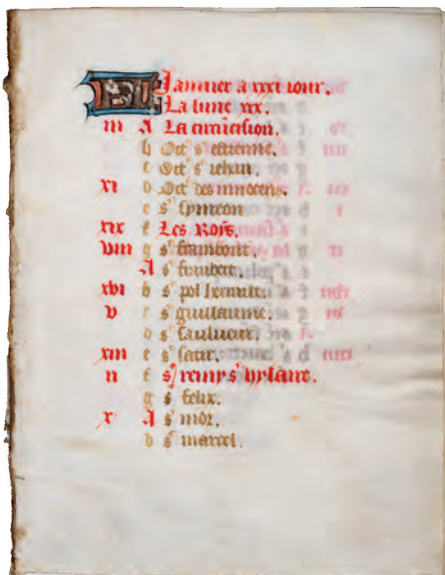 KL Janvier a xxxi jour.
La lune xxx.
iii A La circũcision.
b Oct' s' estienne.
c Oct' s' jehan.
xi d Oct' des innocens.
e s' symeon
xix f Les Roys.
viii g s'
A s' fraubert.
xvi b s' pol hermite.
v c s' guillaume.
d s' saulueur.
xiii e s' satir.
ii f s' remy s' hylaire.
g s' felix.
x A s' mor.
b s' marcel.